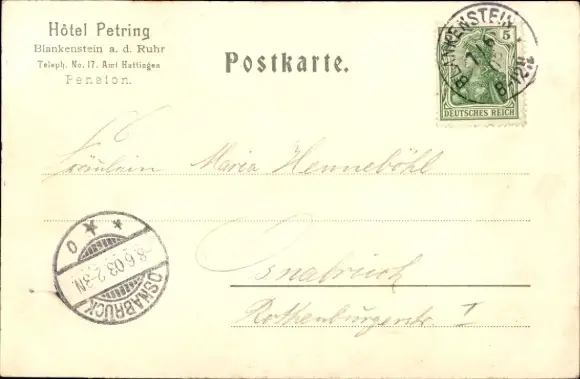 Hôtel Petring
Blankenstein a. d. Ruhr
Teleph. No. 17. Amt Hattingen
Pension.
Postkarte.
BLANKENSTEIN
5
DEUTSCHES REICH
Fräulein Maria Henneböhl
OSNABRÜCK
-8.6.03.2-3N.
Osnabrück
Rothenburgerstr. I